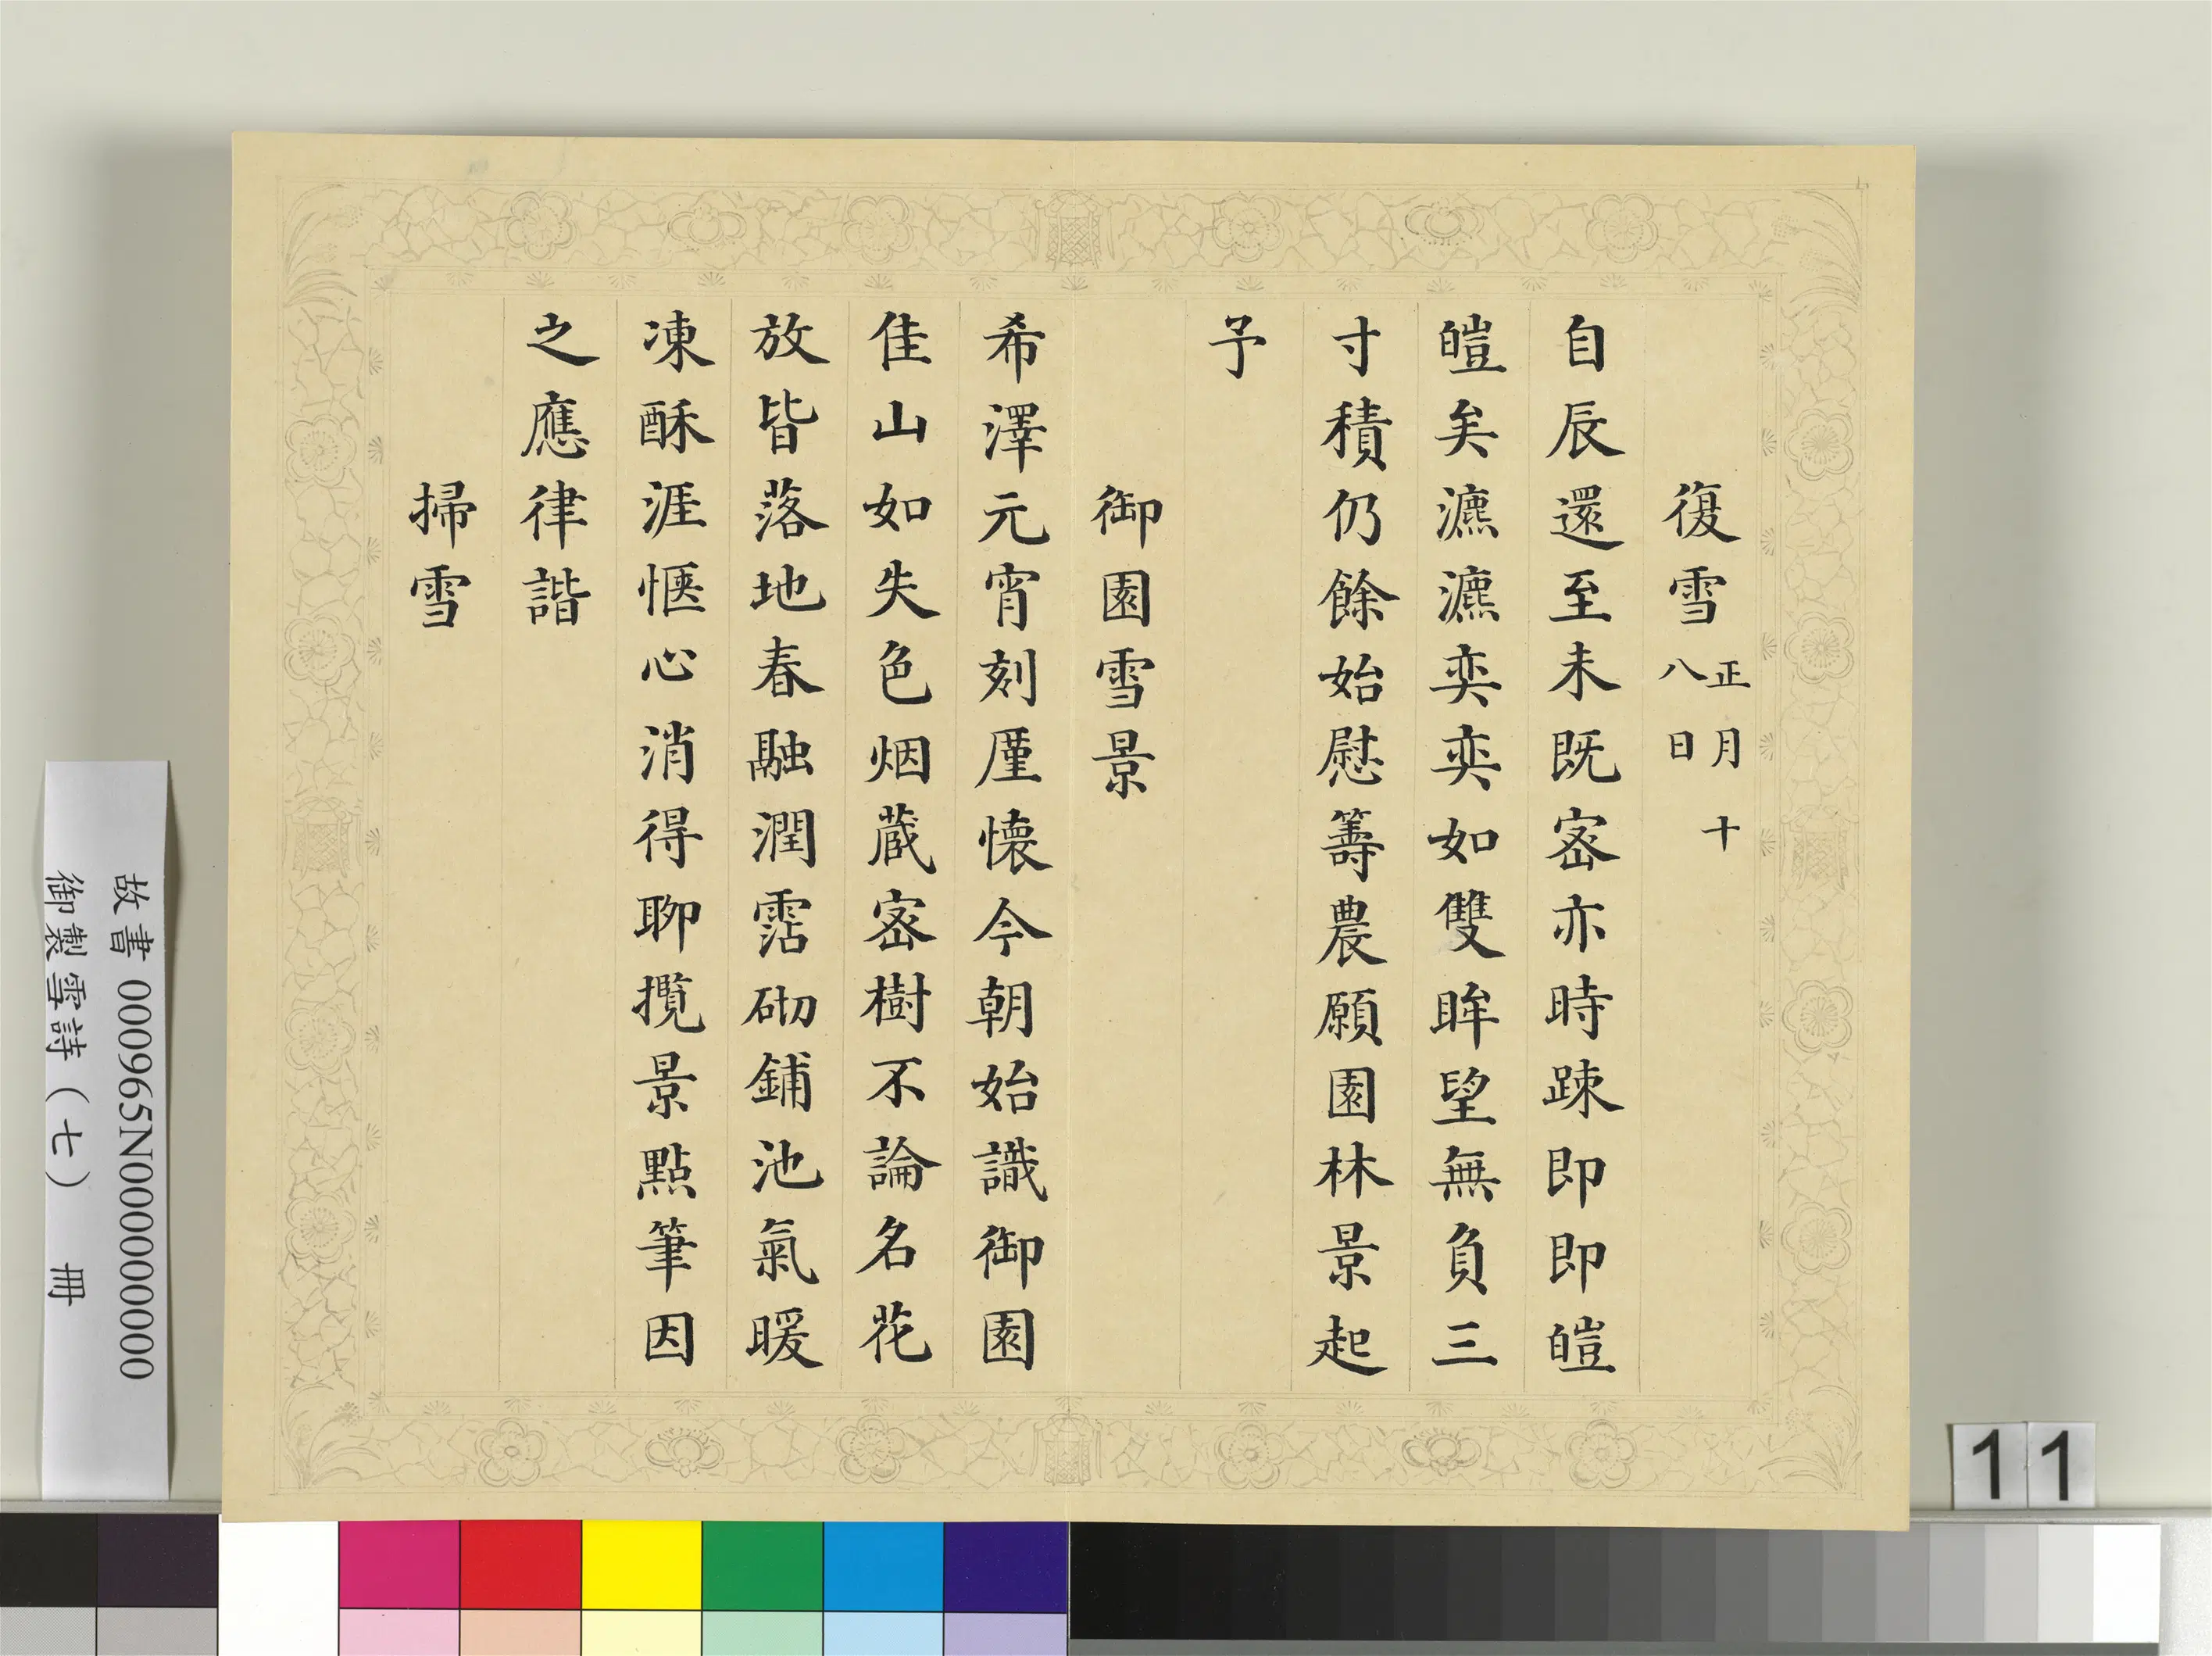 復雪正月十八日
自辰還至未既宻亦時踈即即皚
皚矣瀌瀌奕奕如雙眸望無負三
寸積仍餘始慰籌農願園林景起
予
御園雪景
希澤元宵刻廑懐今朝始識御園
佳山如失色烟蔵宻樹不論名花
放皆落地春融潤霑砌鋪池氣暖
凍酥涯愜心消得聊攬景點筆因
之應律諧
掃雪
故書 000965N000000000
御製雪詩（七） 冊
11